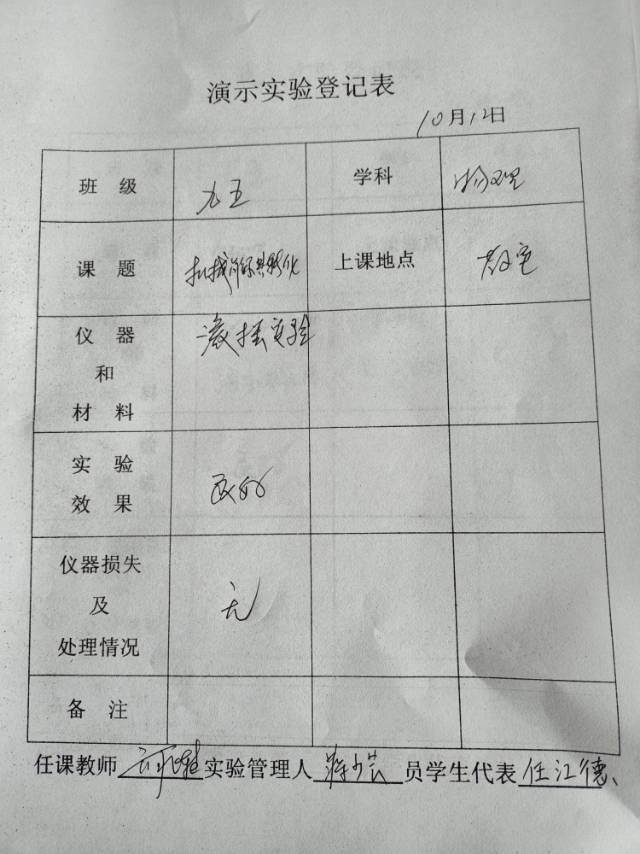 演示实验登记表
10月12日
班 级 九五 学科 物理
课 题 机械能及其转化 上课地点 教室
仪 器 滚摆实验
和
材 料
实 验
效 果 良好
仪器损失
及 无
处理情况
备 注
任课教师 实验管理人 员学生代表 任江德